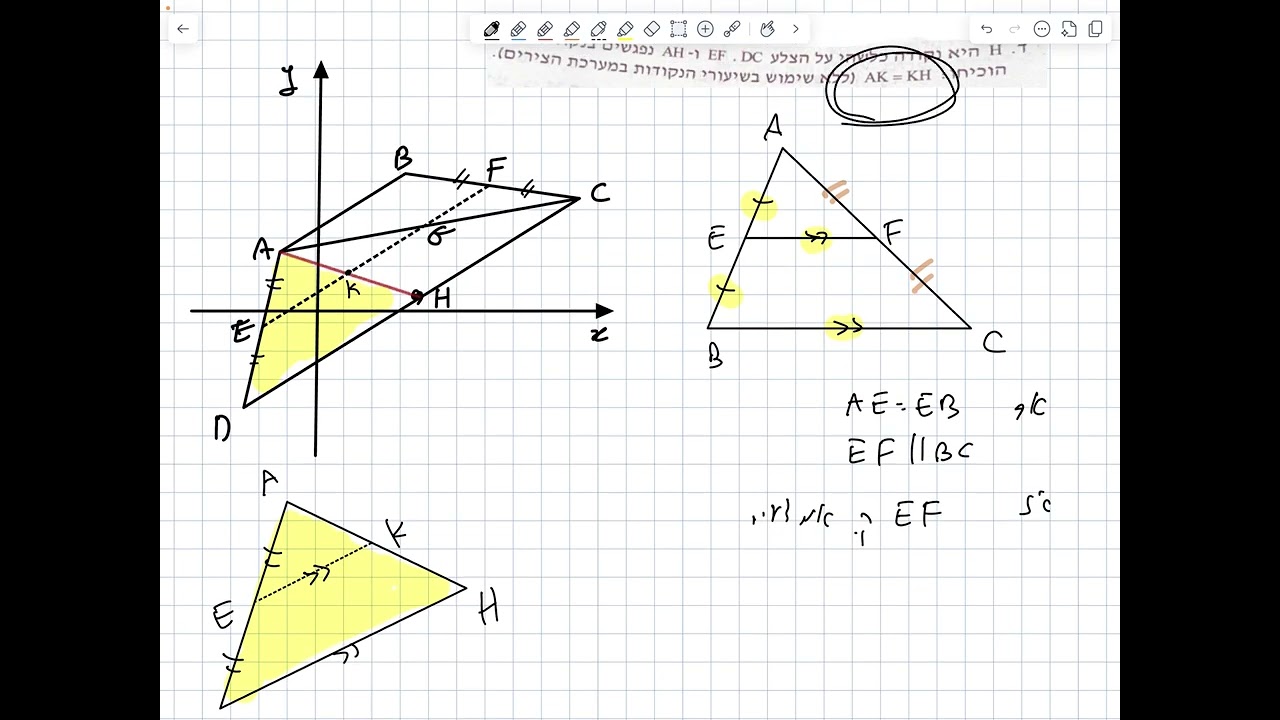 ד. H היא נקודה כלשהי על הצלע DC. EF ו-AH נפגשים
הוכיחו: AK = KH (ללא שימוש בשיעורי הנקודות במערכת הצירים).
y
B
F
C
A
σ
K
H
E
x
D
A
E
F
B
C
AE = EB אם
EF || BC
EF
A
K
E
H